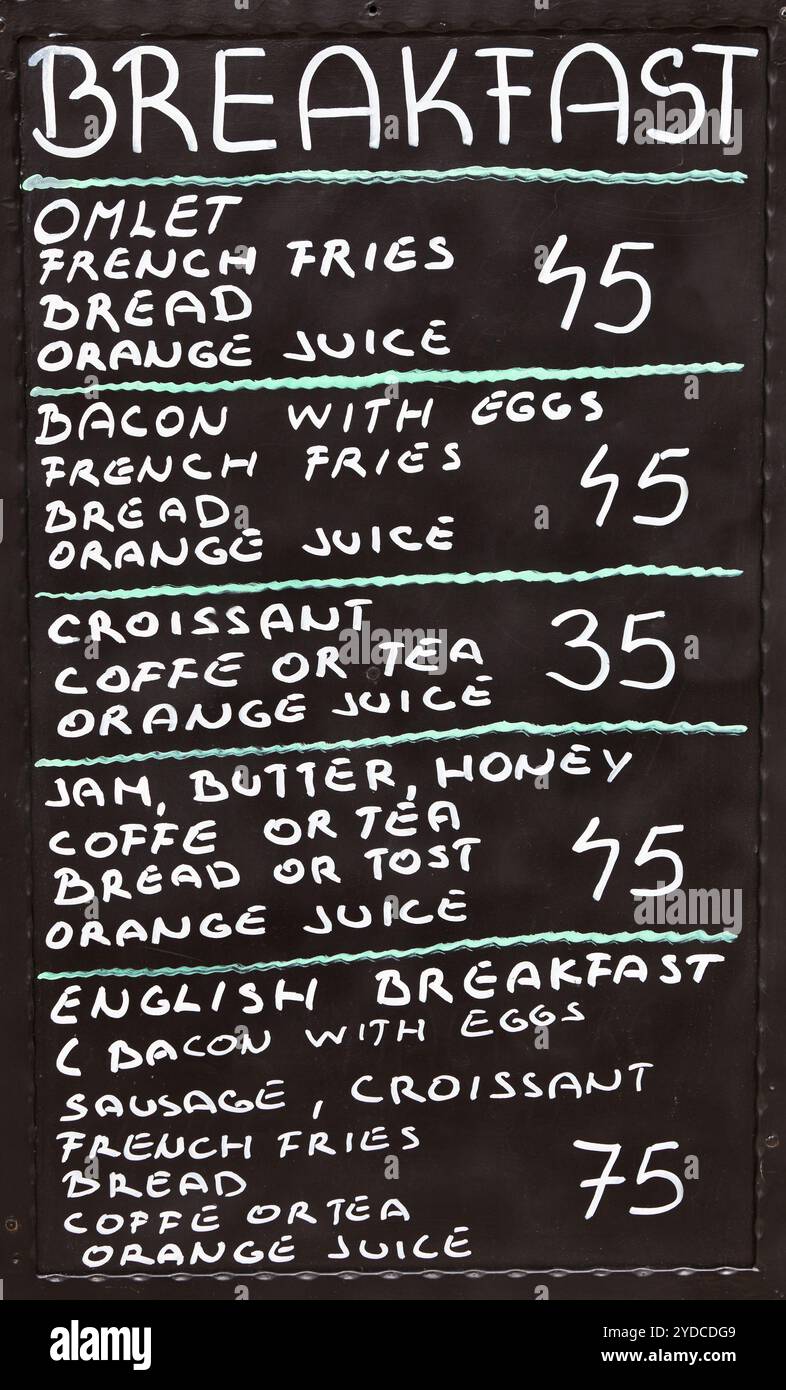 BREAKFAST
OMLET
FRENCH FRIES
BREAD
ORANGE JUICE
45
BACON WITH EGGS
FRENCH FRIES
BREAD
ORANGE JUICE
45
CROISSANT
COFFE OR TEA
ORANGE JUICE
35
JAM, BUTTER, HONEY
COFFE OR TEA
BREAD OR TOST
ORANGE JUICE
45
ENGLISH BREAKFAST
( BACON WITH EGGS
SAUSAGE, CROISSANT
FRENCH FRIES
BREAD
COFFE OR TEA
ORANGE JUICE
75
alamy
Image ID: 2YDCDG9
www.alamy.com